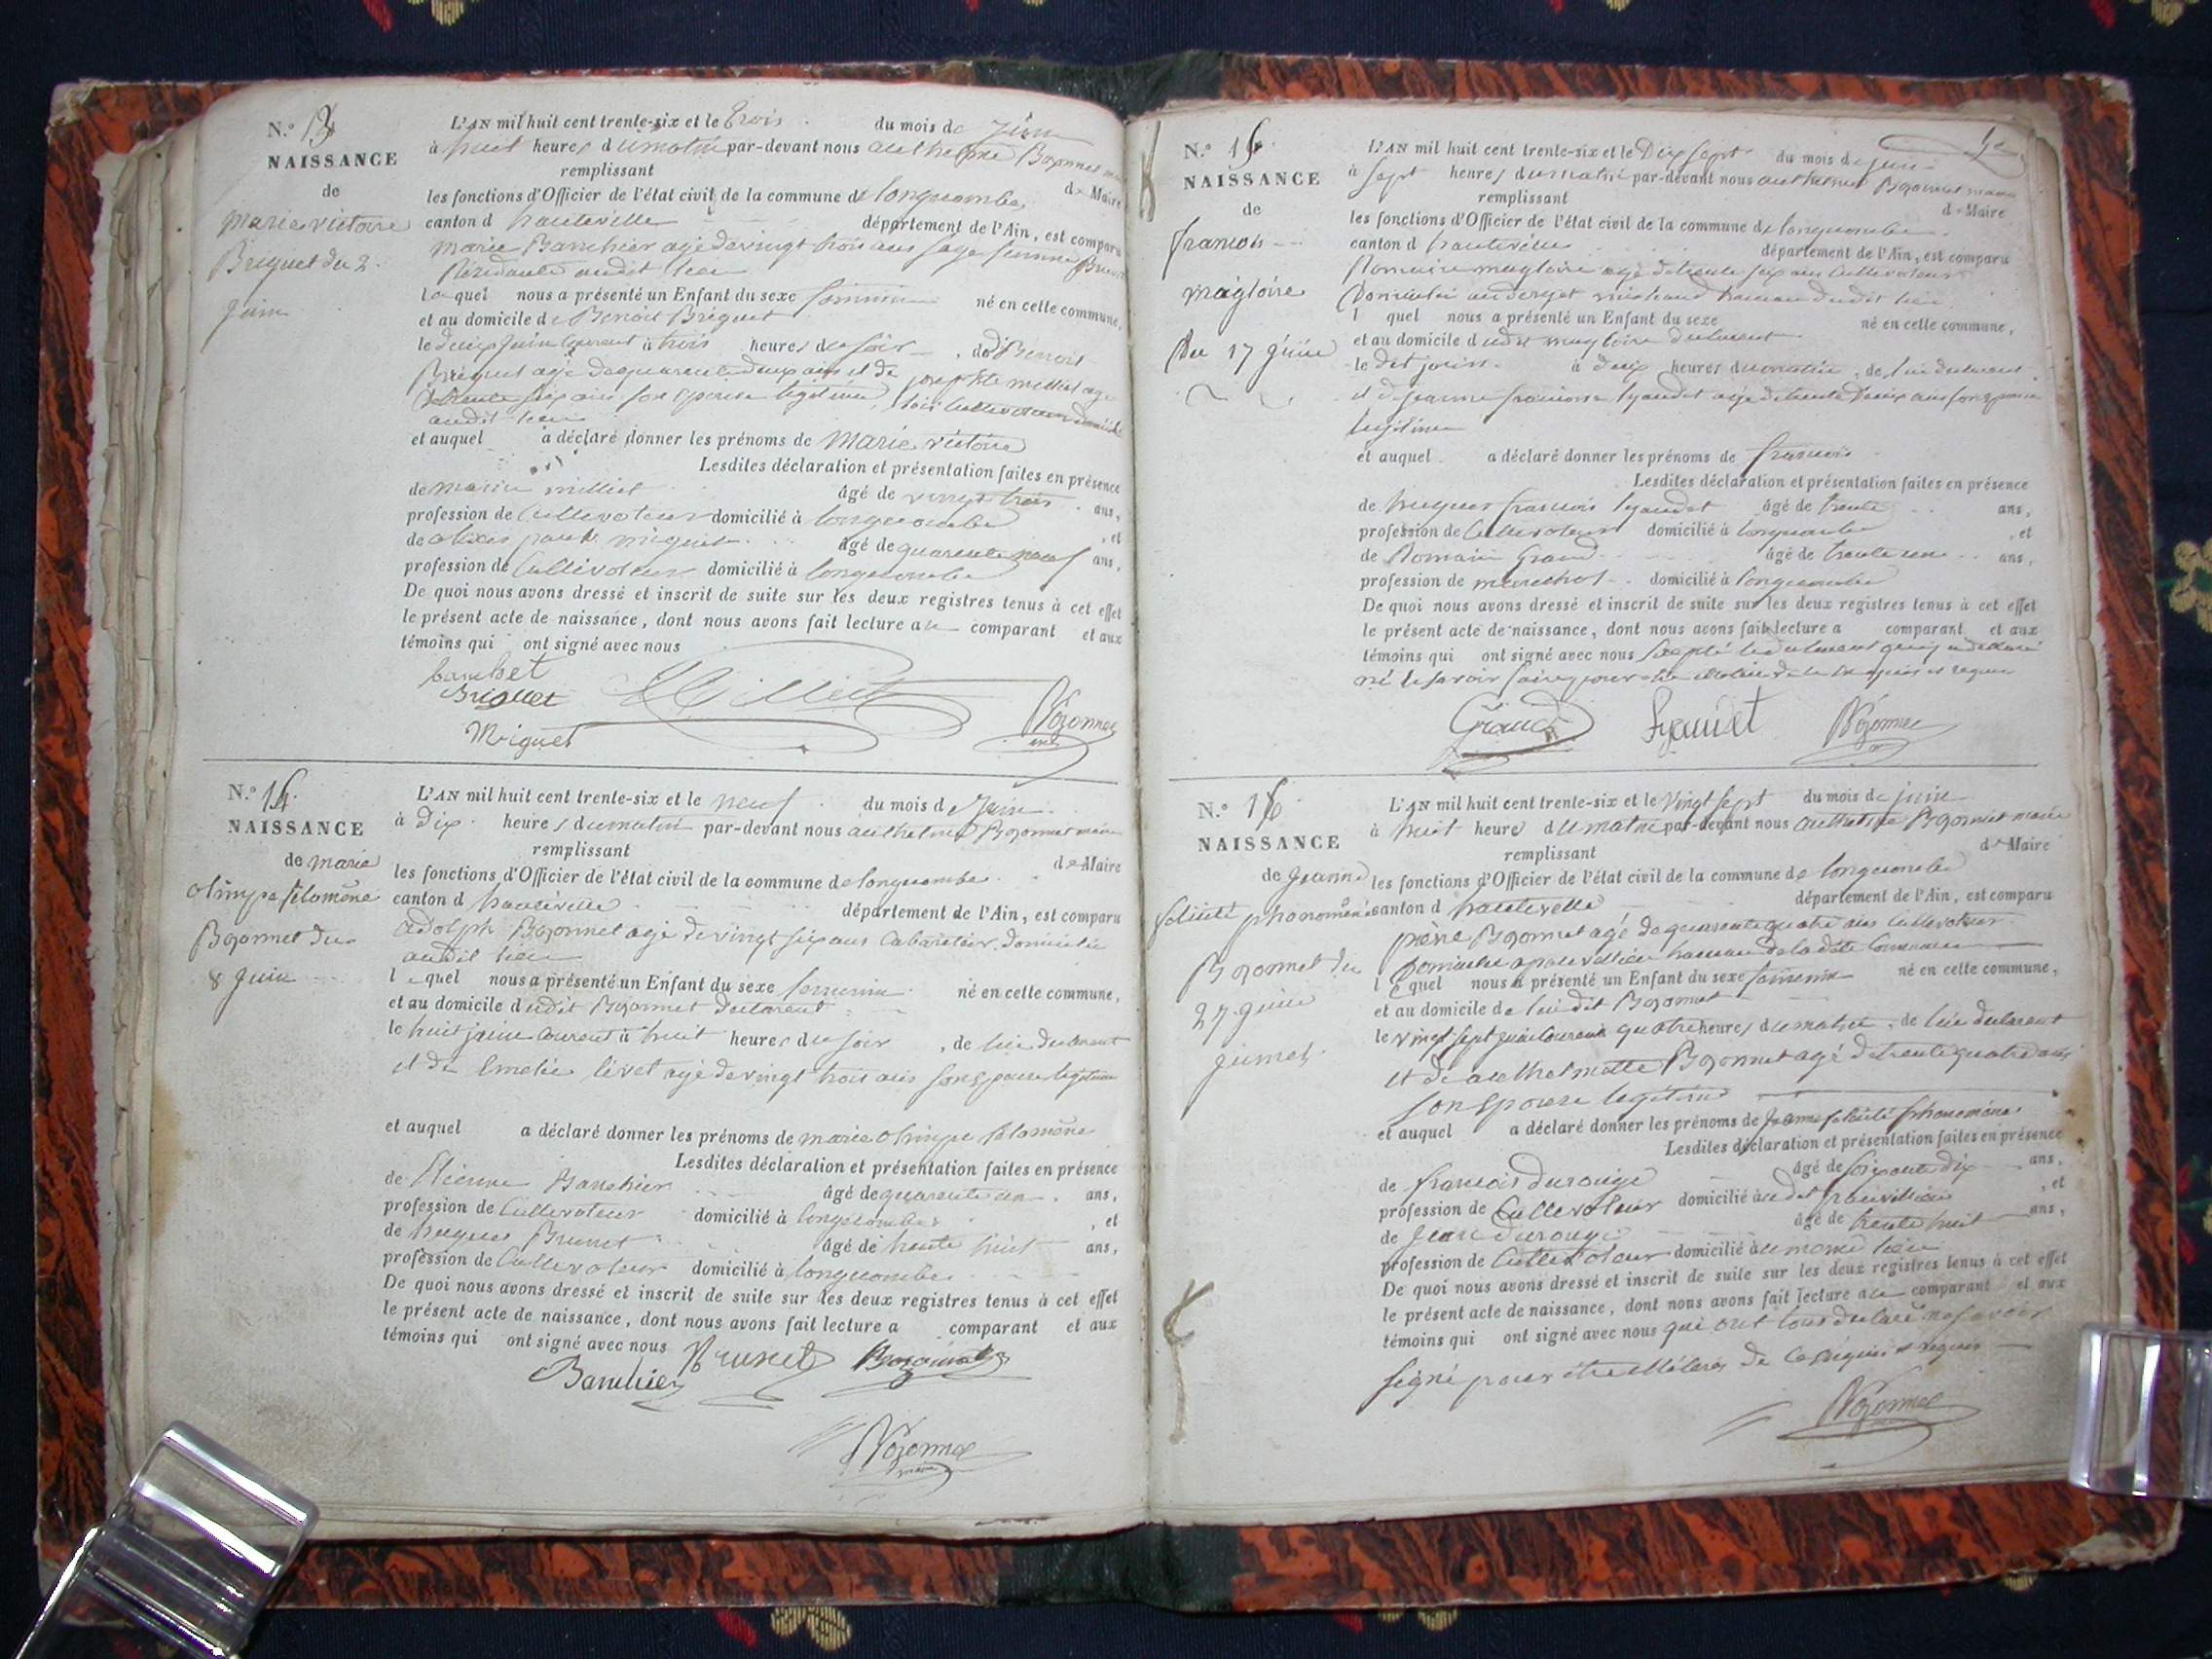 N.° 13
NAISSANCE
de
Marie victoire
Briguet du 2
Juin
L'AN mil huit cent trente-six et le trois du mois de Juin
à huit heures du matin par-devant nous anthelme Bozonnet
remplissant
les fonctions d'Officier de l'état civil de la commune de longecombe de Maire
canton d hauteville département de l'Ain, est comparu
Marie Banchier agé de vingt trois ans sage femme
Rézidante audit lieu
laquel nous a présenté un Enfant du sexe féminin né en cette commune,
et au domicile de Benoit Briguet
le deux Juin courant à trois heures du soir, de Benoit
Briguet agé de quarente deux ans et de josephte milliet agé
de trente six ans son epouse légitime, cultivateurs
audit lieu
et auquel a déclaré donner les prénoms de Marie victoire
Lesdites déclaration et présentation faites en présence
de milliet âgé de vingt trois ans,
profession de Cultivateur domicilié à longecombe, et
de miguet âgé de quarente neuf ans,
profession de Cultivateur domicilié à longecombe
De quoi nous avons dressé et inscrit de suite sur les deux registres tenus à cet effet
le présent acte de naissance, dont nous avons fait lecture a la comparant et aux
témoins qui ont signé avec nous
Briguet Milliet
Miguet Bozonnet
N.° 14
NAISSANCE
de marie
olimpe filomène
Bozonnet du
8 Juin
L'AN mil huit cent trente-six et le neuf du mois de Juin
à dix heures du matin par-devant nous anthelme Bozonnet maire
remplissant
les fonctions d'Officier de l'état civil de la commune de longecombe de Maire
canton d hauteville département de l'Ain, est comparu
adolph Bozonnet agé de vingt six ans Cabaretier domicilié
audit lieu
lequel nous a présenté un Enfant du sexe feminin né en cette commune,
et au domicile dudit Bozonnet declarent
le huit juin courent à huit heures du soir, de lui declarent
et de Emelie livet agé de vingt trois ans son epouse legitime
et auquel a déclaré donner les prénoms de marie olimpe filomène
Lesdites déclaration et présentation faites en présence
de Etienne Banchier âgé de quarente un ans,
profession de Cultivateur domicilié à longecombe, et
de hugues Brunet âgé de trente huit ans,
profession de Cultivateur domicilié à longecombe
De quoi nous avons dressé et inscrit de suite sur les deux registres tenus à cet effet
le présent acte de naissance, dont nous avons fait lecture a comparant et aux
témoins qui ont signé avec nous
Banchier Brunet Bozonnet
Bozonnet
maire
N.° 15
NAISSANCE
de
francois
magloire
Du 17 Juin
L'AN mil huit cent trente-six et le Dix sept du mois de juin
à sept heures du matin par-devant nous anthelme Bozonnet maire
remplissant
les fonctions d'Officier de l'état civil de la commune de longecombe de Maire
canton d hauteville département de l'Ain, est comparu
Romain magloire agé de trente six ans Cultivateur
Domicilié hameau dudit lieu
l quel nous a présenté un Enfant du sexe né en cette commune,
et au domicile dudit magloire declarent
le dit jour à deux heures du matin, de lui declarent
et de jeanne francoise lyaudet agé de trente deux ans son epouse
legitime
et auquel a déclaré donner les prénoms de francois
Lesdites déclaration et présentation faites en présence
de hugues francois lyaudet âgé de trente ans,
profession de Cultivateur domicilié à longecombe, et
de Romain Grand âgé de trente un ans,
profession de marechal domicilié à longecombe
De quoi nous avons dressé et inscrit de suite sur les deux registres tenus à cet effet
le présent acte de naissance, dont nous avons fait lecture a comparant et aux
témoins qui ont signé avec nous excepté le declarent
né le savoir faire pour etre de ce requis
Grand Lyaudet Bozonnet
N.° 16
NAISSANCE
de Jeanne
félicité phonomène
Bozonnet du
27 juin
L'AN mil huit cent trente-six et le vingt sept du mois de juin
à huit heure du matin par-devant nous anthelme Bozonnet maire
remplissant
les fonctions d'Officier de l'état civil de la commune de longecombe de Maire
canton d hauteville département de l'Ain, est comparu
pière Bozonnet agé de quarente quatre ans Cultivateur
Domicilié hameau de la dite Commune
lequel nous a présenté un Enfant du sexe féminin né en cette commune,
et au domicile de lui dit Bozonnet
le vingt sept juin courent à quatre heures du matin, de lui declarent
et de anthelmette Bozonnet agé de trente quatre ans
son epouse legitime
et auquel a déclaré donner les prénoms de Jeanne félicité phonomène
Lesdites déclaration et présentation faites en présence
de francois durouge âgé de soixante dix ans,
profession de Cultivateur domicilié, et
de Jean durouge âgé de trente huit ans,
profession de Cultivateur domicilié au meme lieu
De quoi nous avons dressé et inscrit de suite sur les deux registres tenus à cet effet
le présent acte de naissance, dont nous avons fait lecture a le comparant et aux
témoins qui ont signé avec nous qui ont tous declaré ne savoir
signé pour etre de ce requis
Bozonnet